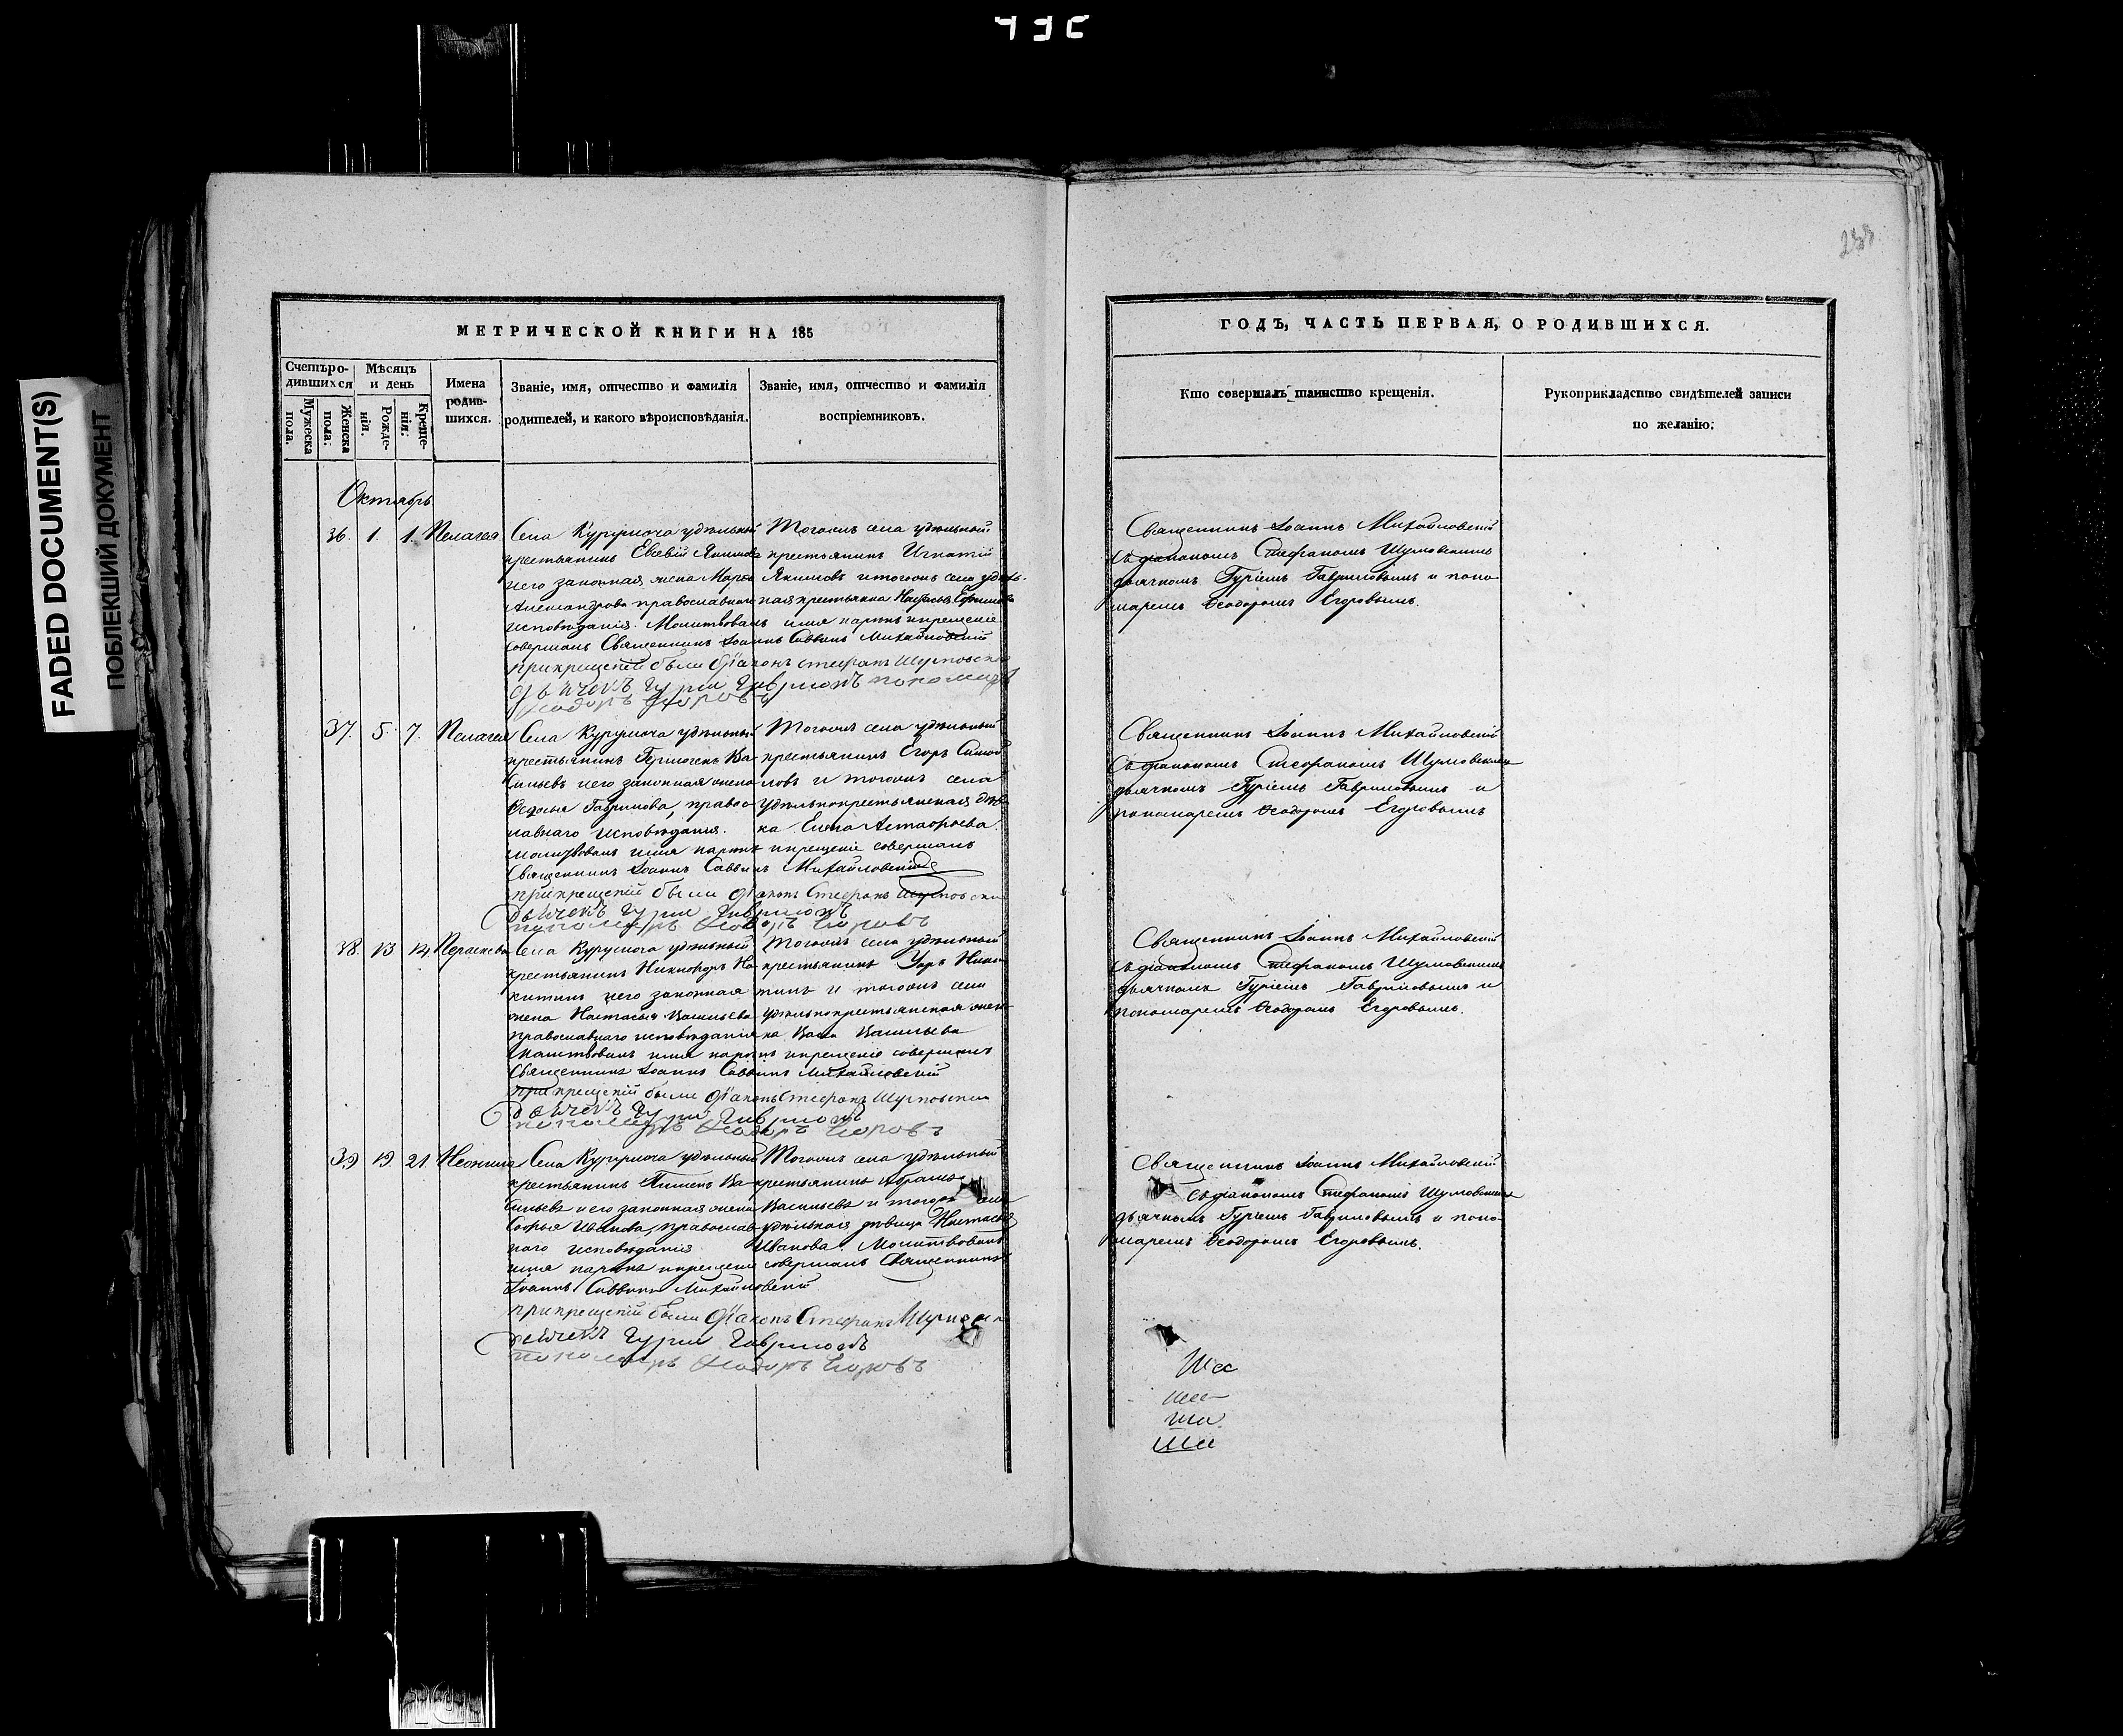 FADED DOCUMENT(S)
ПОБЛЕКШИЙ ДОКУМЕНТ
МЕТРИЧЕСКОЙ КНИГИ НА 185
Счетъ ро-
дившихся
Мужеска пола.
Женска пола.
Мѣсяцъ
и день
Рожде-
нія.
Креще-
нія.
Имена
родив-
шихся.
Званіе, имя, отчество и фамилія
родителей, и какого вѣроисповѣданія.
Званіе, имя, отчество и фамилія
воспріемниковъ.
Октябрь
36. 1. 1. Пелагея
Села Курумоча удѣльный
крестьянинъ Евсевій Якимовъ
и его законная жена Марья
Александрова православнаго
исповѣданія.
Тогожъ села удѣльный
крестьянинъ Игнатій
Якимовъ и тогожъ села удѣль-
ная крестьянка Настасья
Молитвовалъ имя нарекъ и крещеніе
совершалъ Священникъ Іоаннъ Саввинъ Михайловскій
при крещеніи были Діаконъ Стефанъ Шумовски
дьячекъ Гурій Гавриловъ пономарь
Ѳеодоръ Егоровъ
37. 5. 7. Пелагея
Села Курумоча удѣльный
крестьянинъ Гермогенъ Ва-
сильевъ и его законная жена
Ѳедосья Гаврилова, правос-
лавнаго исповѣданія.
Тогожъ села удѣльный
крестьянинъ Егоръ
и тогожъ села
удѣльнокрестьянская дѣв-
ка Елена Астафьева.
Молитвовалъ имя нарекъ и крещеніе совершалъ
Священникъ Іоаннъ Саввинъ Михайловскій
при крещеніи были Діаконъ Стефанъ Шумовски
дьячекъ Гурій Гавриловъ
пономарь Ѳеодоръ Егоровъ
38. 13 14. Параскева
Села Курумоча удѣльный
крестьянинъ Никифоръ Ни-
китинъ и его законная
жена Настасья Васильева
православнаго исповѣданія
Тогожъ села удѣльный
крестьянинъ Уаръ Ники-
тинъ и тогожъ села
удѣльнокрестьянская
Васильева
Молитвовалъ имя нарекъ и крещеніе совершалъ
Священникъ Іоаннъ Саввинъ Михайловскій
при крещеніи были Діаконъ Стефанъ Шумовски
дьячекъ Гурій Гавриловъ
пономарь Ѳеодоръ Егоровъ
39 19. 21. Неонила
Села Курумоча удѣльный
крестьянинъ Пименъ Ва-
сильевъ и его законная жена
Софья Иванова, православ-
наго исповѣданія
Тогожъ села удѣльный
крестьянинъ Абрамъ
Васильевъ и тогожъ села
удѣльная дѣвица Настасья
Иванова. Молитвовалъ
имя нарекъ и крещеніе совершалъ Священникъ
Іоаннъ Саввинъ Михайловскій
при крещеніи были Діаконъ Стефанъ
дьячекъ Гурій Гавриловъ
пономарь Ѳеодоръ Егоровъ
ГОДЪ, ЧАСТЬ ПЕРВАЯ, О РОДИВШИХСЯ.
Кто совершалъ таинство крещенія.
Рукоприкладство свидѣтелей записи
по желанію.
Священникъ Іоаннъ Михайловскій
съ діакономъ Стефаномъ Шумовскимъ
дьячкомъ Гуріемъ Гавриловымъ и поно-
маремъ Ѳеодоромъ Егоровымъ.
Священникъ Іоаннъ Михайловскій
съ діакономъ Стефаномъ Шумовскимъ
дьячкомъ Гуріемъ Гавриловымъ и
пономаремъ Ѳеодоромъ Егоровымъ
Священникъ Іоаннъ Михайловскій
съ діакономъ Стефаномъ Шумовскимъ
дьячкомъ Гуріемъ Гавриловымъ и
пономаремъ Ѳеодоромъ Егоровымъ.
Священникъ Іоаннъ Михайловскій
съ діакономъ Стефаномъ Шумовскимъ
дьячкомъ Гуріемъ Гавриловымъ и поно-
маремъ Ѳеодоромъ Егоровымъ.